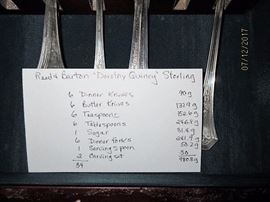 Reed & Barton "Dorothy Quincy" Sterling
6 Dinner Knives 90g
6 Butter Knives 132.9g
6 Teaspoons 152.6g
6 Tablespoons 246.8g
1 Sugar 31.4g
6 Dinner Forks
1 Serving Spoon 53.2g
2 Carving set 30
34
07/12/2017